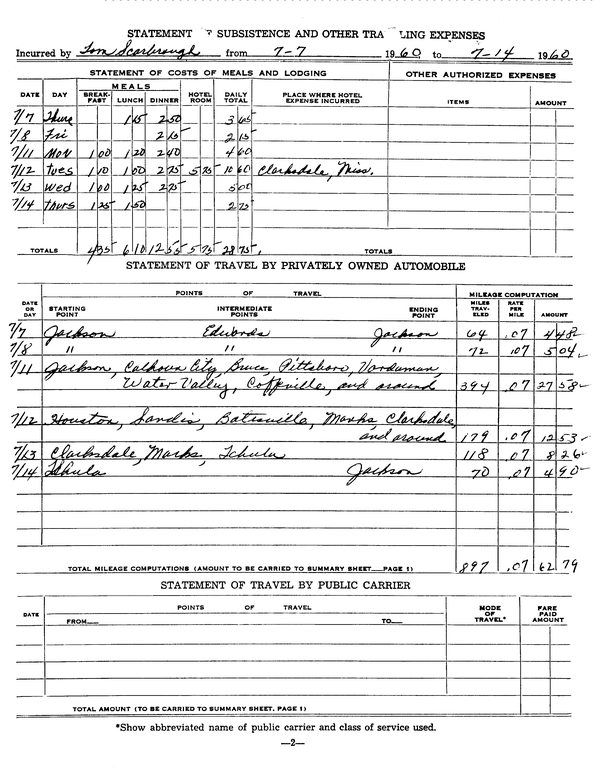 STATEMENT SUBSISTENCE AND OTHER TRA LING EXPENSES
Incurred by Tom Scarbrough from 7-7 1960 to 7-14 1960
STATEMENT OF COSTS OF MEALS AND LODGING OTHER AUTHORIZED EXPENSES
DATE DAY MEALS BREAK-FAST LUNCH DINNER HOTEL ROOM DAILY TOTAL PLACE WHERE HOTEL EXPENSE INCURRED ITEMS AMOUNT
7/7 Thurs 1 15 2 50 3 65
7/8 Fri 2 15 2 15
7/11 Mon 1 00 1 20 2 40 4 60
7/12 Tues 1 10 1 00 2 75 5 75 10 60 Clarksdale, Miss.
7/13 Wed 1 00 1 25 2 75 5 00
7/14 Thurs 1 25 1 50 2 75
TOTALS 4 35 6 10 12 55 5 75 28 75 TOTALS
STATEMENT OF TRAVEL BY PRIVATELY OWNED AUTOMOBILE
DATE OR DAY POINTS OF TRAVEL MILEAGE COMPUTATION
STARTING POINT INTERMEDIATE POINTS ENDING POINT MILES TRAV-ELED RATE PER MILE AMOUNT
7/7 Jackson Edwards Jackson 64 .07 4 48
7/8 " " " 72 .07 5 04
7/11 Jackson, Calhoun City, Bruce, Pittsboro, Vardaman,
Water Valley, Coffeville, and around 394 .07 27 58
7/12 Houston, Sardis, Batesville, Marks, Clarksdale,
and around 179 .07 12 53
7/13 Clarksdale, Marks, Tchula 118 .07 8 26
7/14 Tchula Jackson 70 .07 4 90
TOTAL MILEAGE COMPUTATIONS (AMOUNT TO BE CARRIED TO SUMMARY SHEET PAGE 1) 897 .07 62 79
STATEMENT OF TRAVEL BY PUBLIC CARRIER
DATE POINTS OF TRAVEL MODE OF TRAVEL* FARE PAID AMOUNT
FROM TO
TOTAL AMOUNT (TO BE CARRIED TO SUMMARY SHEET, PAGE 1)
*Show abbreviated name of public carrier and class of service used.
—2—